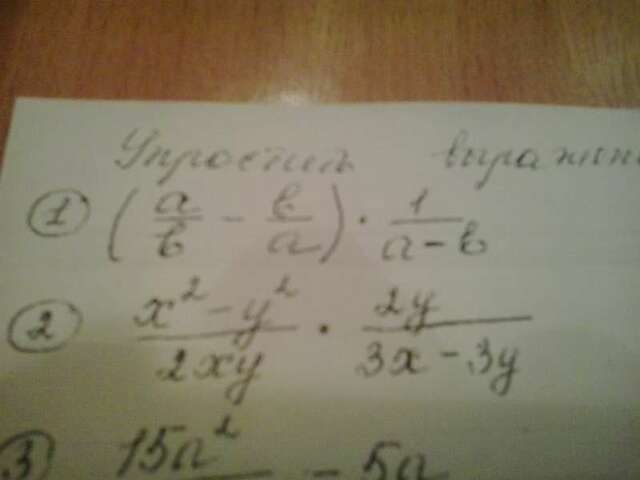 Упростить выражени
① (a/b - b/a) · 1/(a-b)
② (x² - y²)/(2xy) · 2y/(3x - 3y)
③ 15a² - 5a